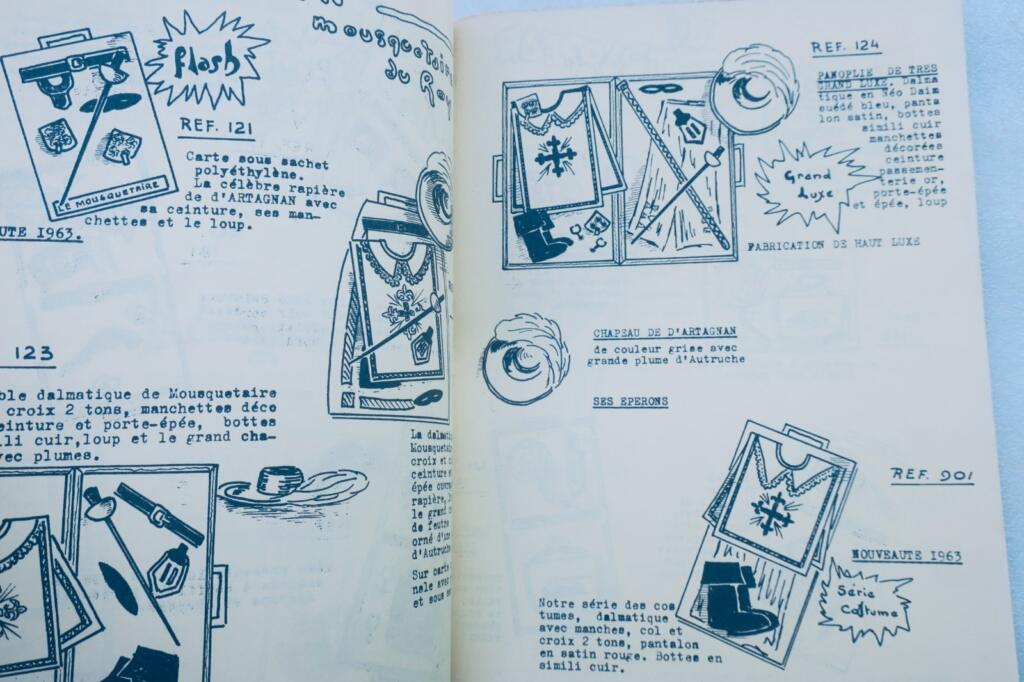 mousquetaire
du Roy
flash
REF. 121
Carte sous sachet
polyéthylène.
La célèbre rapière
de d'ARTAGNAN avec
sa ceinture, ses man-
chettes et le loup.
LE MOUSQUETAIRE
UTE 1963.
123
ble dalmatique de Mousquetaire
croix 2 tons, manchettes déco
einture et porte-épée, bottes
ili cuir,loup et le grand cha-
vec plumes.
La dalmat
Mousquetai
croix et
ceinture
épée
rapière,
le grand
de feutre
orné d'un
d'Autruche
Sur carte
nale avec
et sous
REF. 124
PANOPLIE DE TRES
GRAND LUXE. Dalma
tique en Néo Daim
suédé bleu, panta
lon satin, bottes
simili cuir
manchettes
décorées
ceinture
passemen-
terie or,
porte-épée
et épée, loup
Grand
Luxe
FABRICATION DE HAUT LUXE
CHAPEAU DE D'ARTAGNAN
de couleur grise avec
grande plume d'Autruche
SES EPERONS
REF. 901
NOUVEAUTE 1963
Série
Costume
Notre série des cos
tumes, dalmatique
avec manches, col et
croix 2 tons, pantalon
en satin rouge. Bottes en
simili cuir.